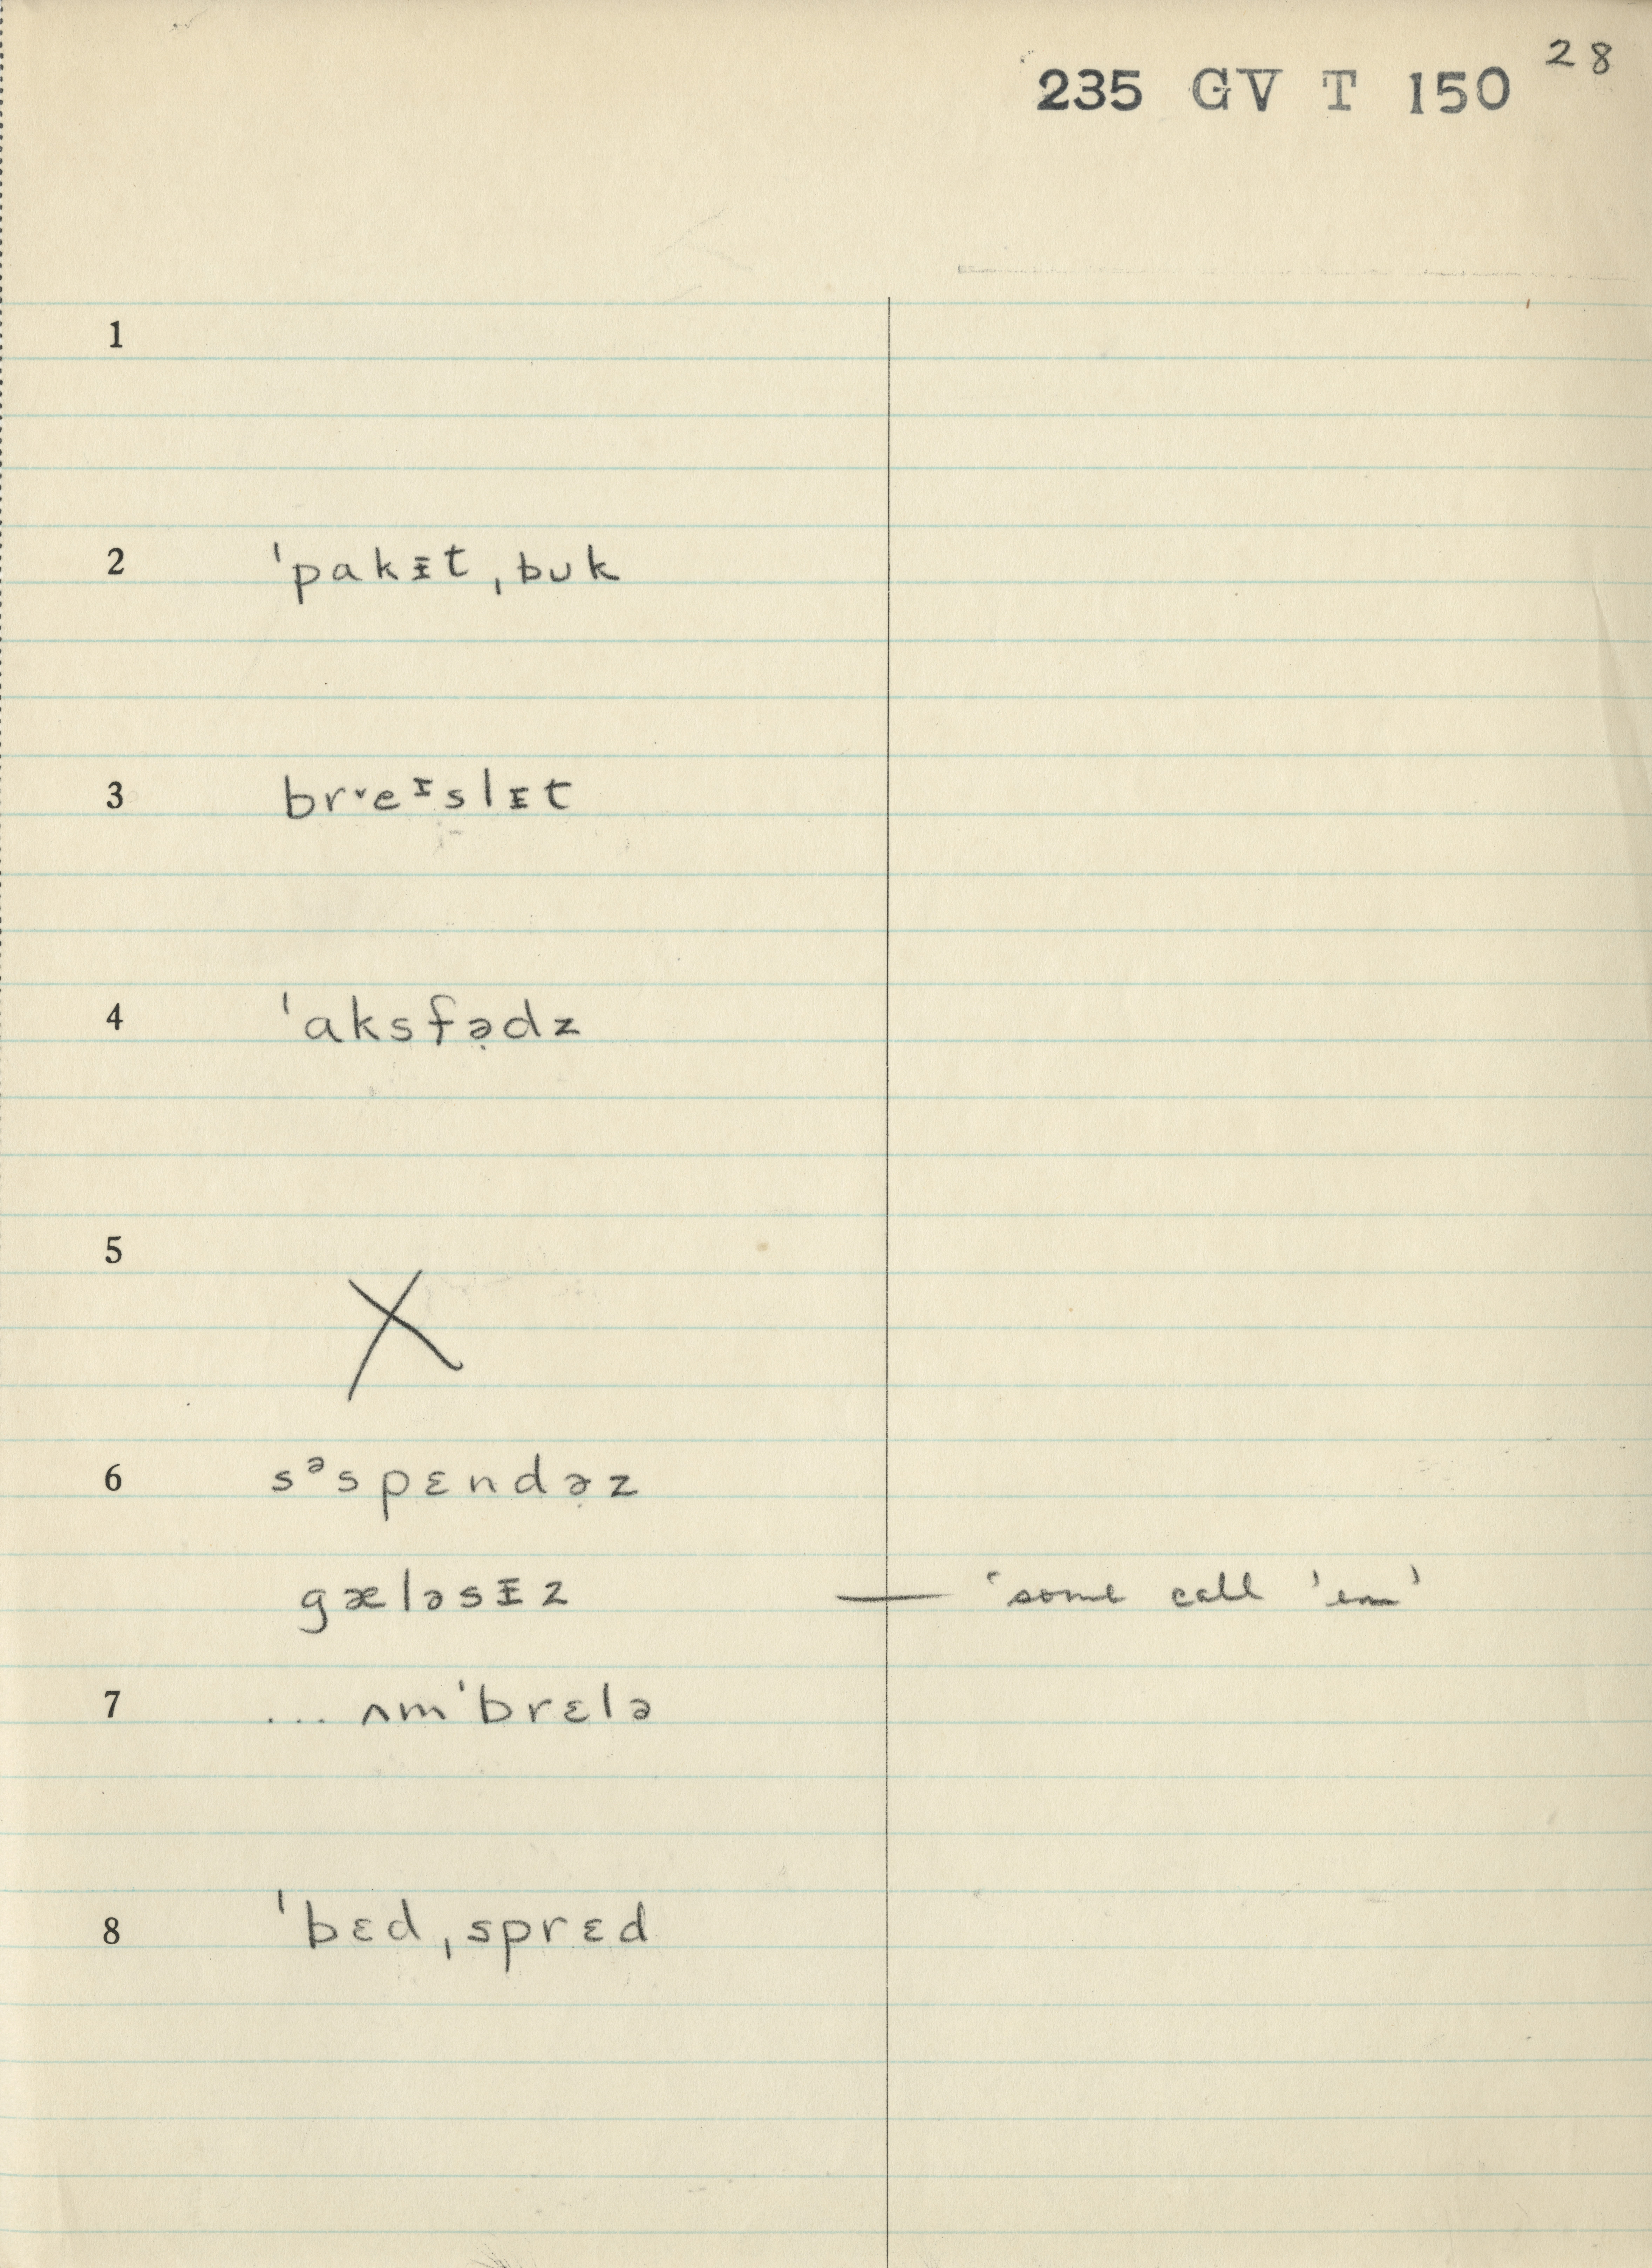 28
235 GV T 150
1
2 ˈpakᵻt ˌbʊk
3 br˅eᵻslᵻt
4 ˈaksfə̣dz
5 X
6 sᵊspɛndə̣z
gæləsᵻz — 'some call 'em'
7 ... ʌmˈbrɛlə
8 ˈbɛd ˌsprɛd